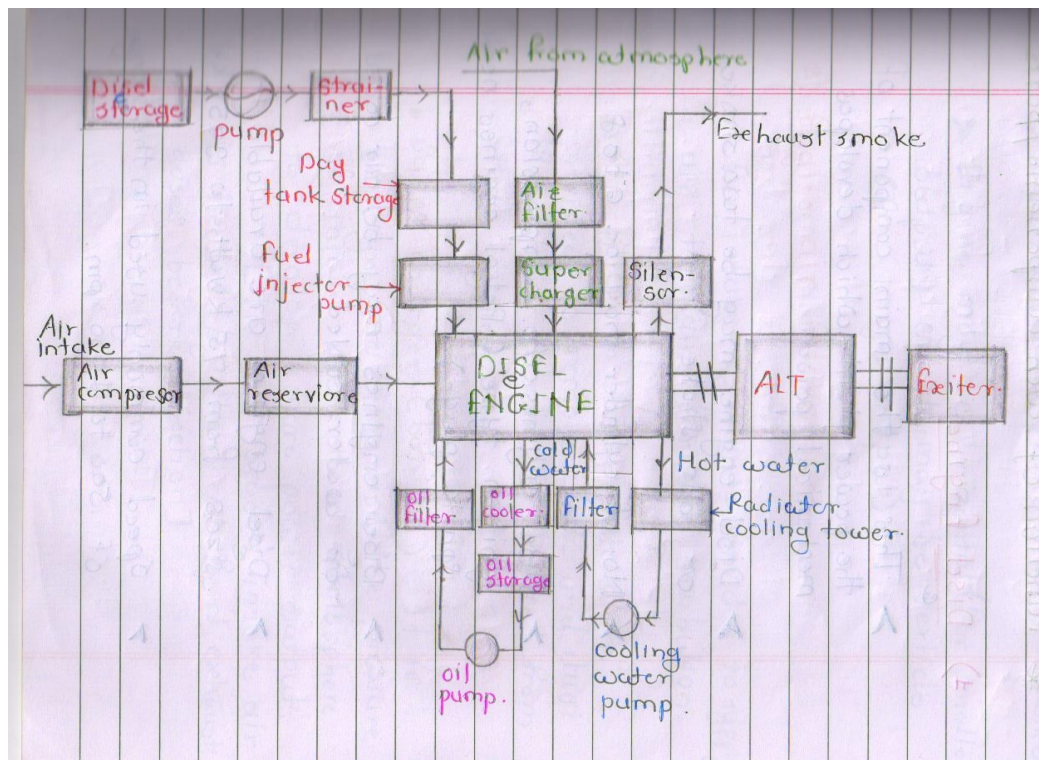 Air from atmosphere
Disel
e
storage
pump
Strai-
ner
Exhaust smoke
Day
tank storage
Air
filter.
Fuel
injector
pump
Super
charger
Silen-
sor.
Air
intake
Air
compresor
Air
reserviore
DISEL
e
ENGINE
ALT
Exiter.
cold
water
Hot water
oil
filter
oil
cooler.
filter
Radiator
cooling tower.
oil
storage
oil
pump.
cooling
water
pump.